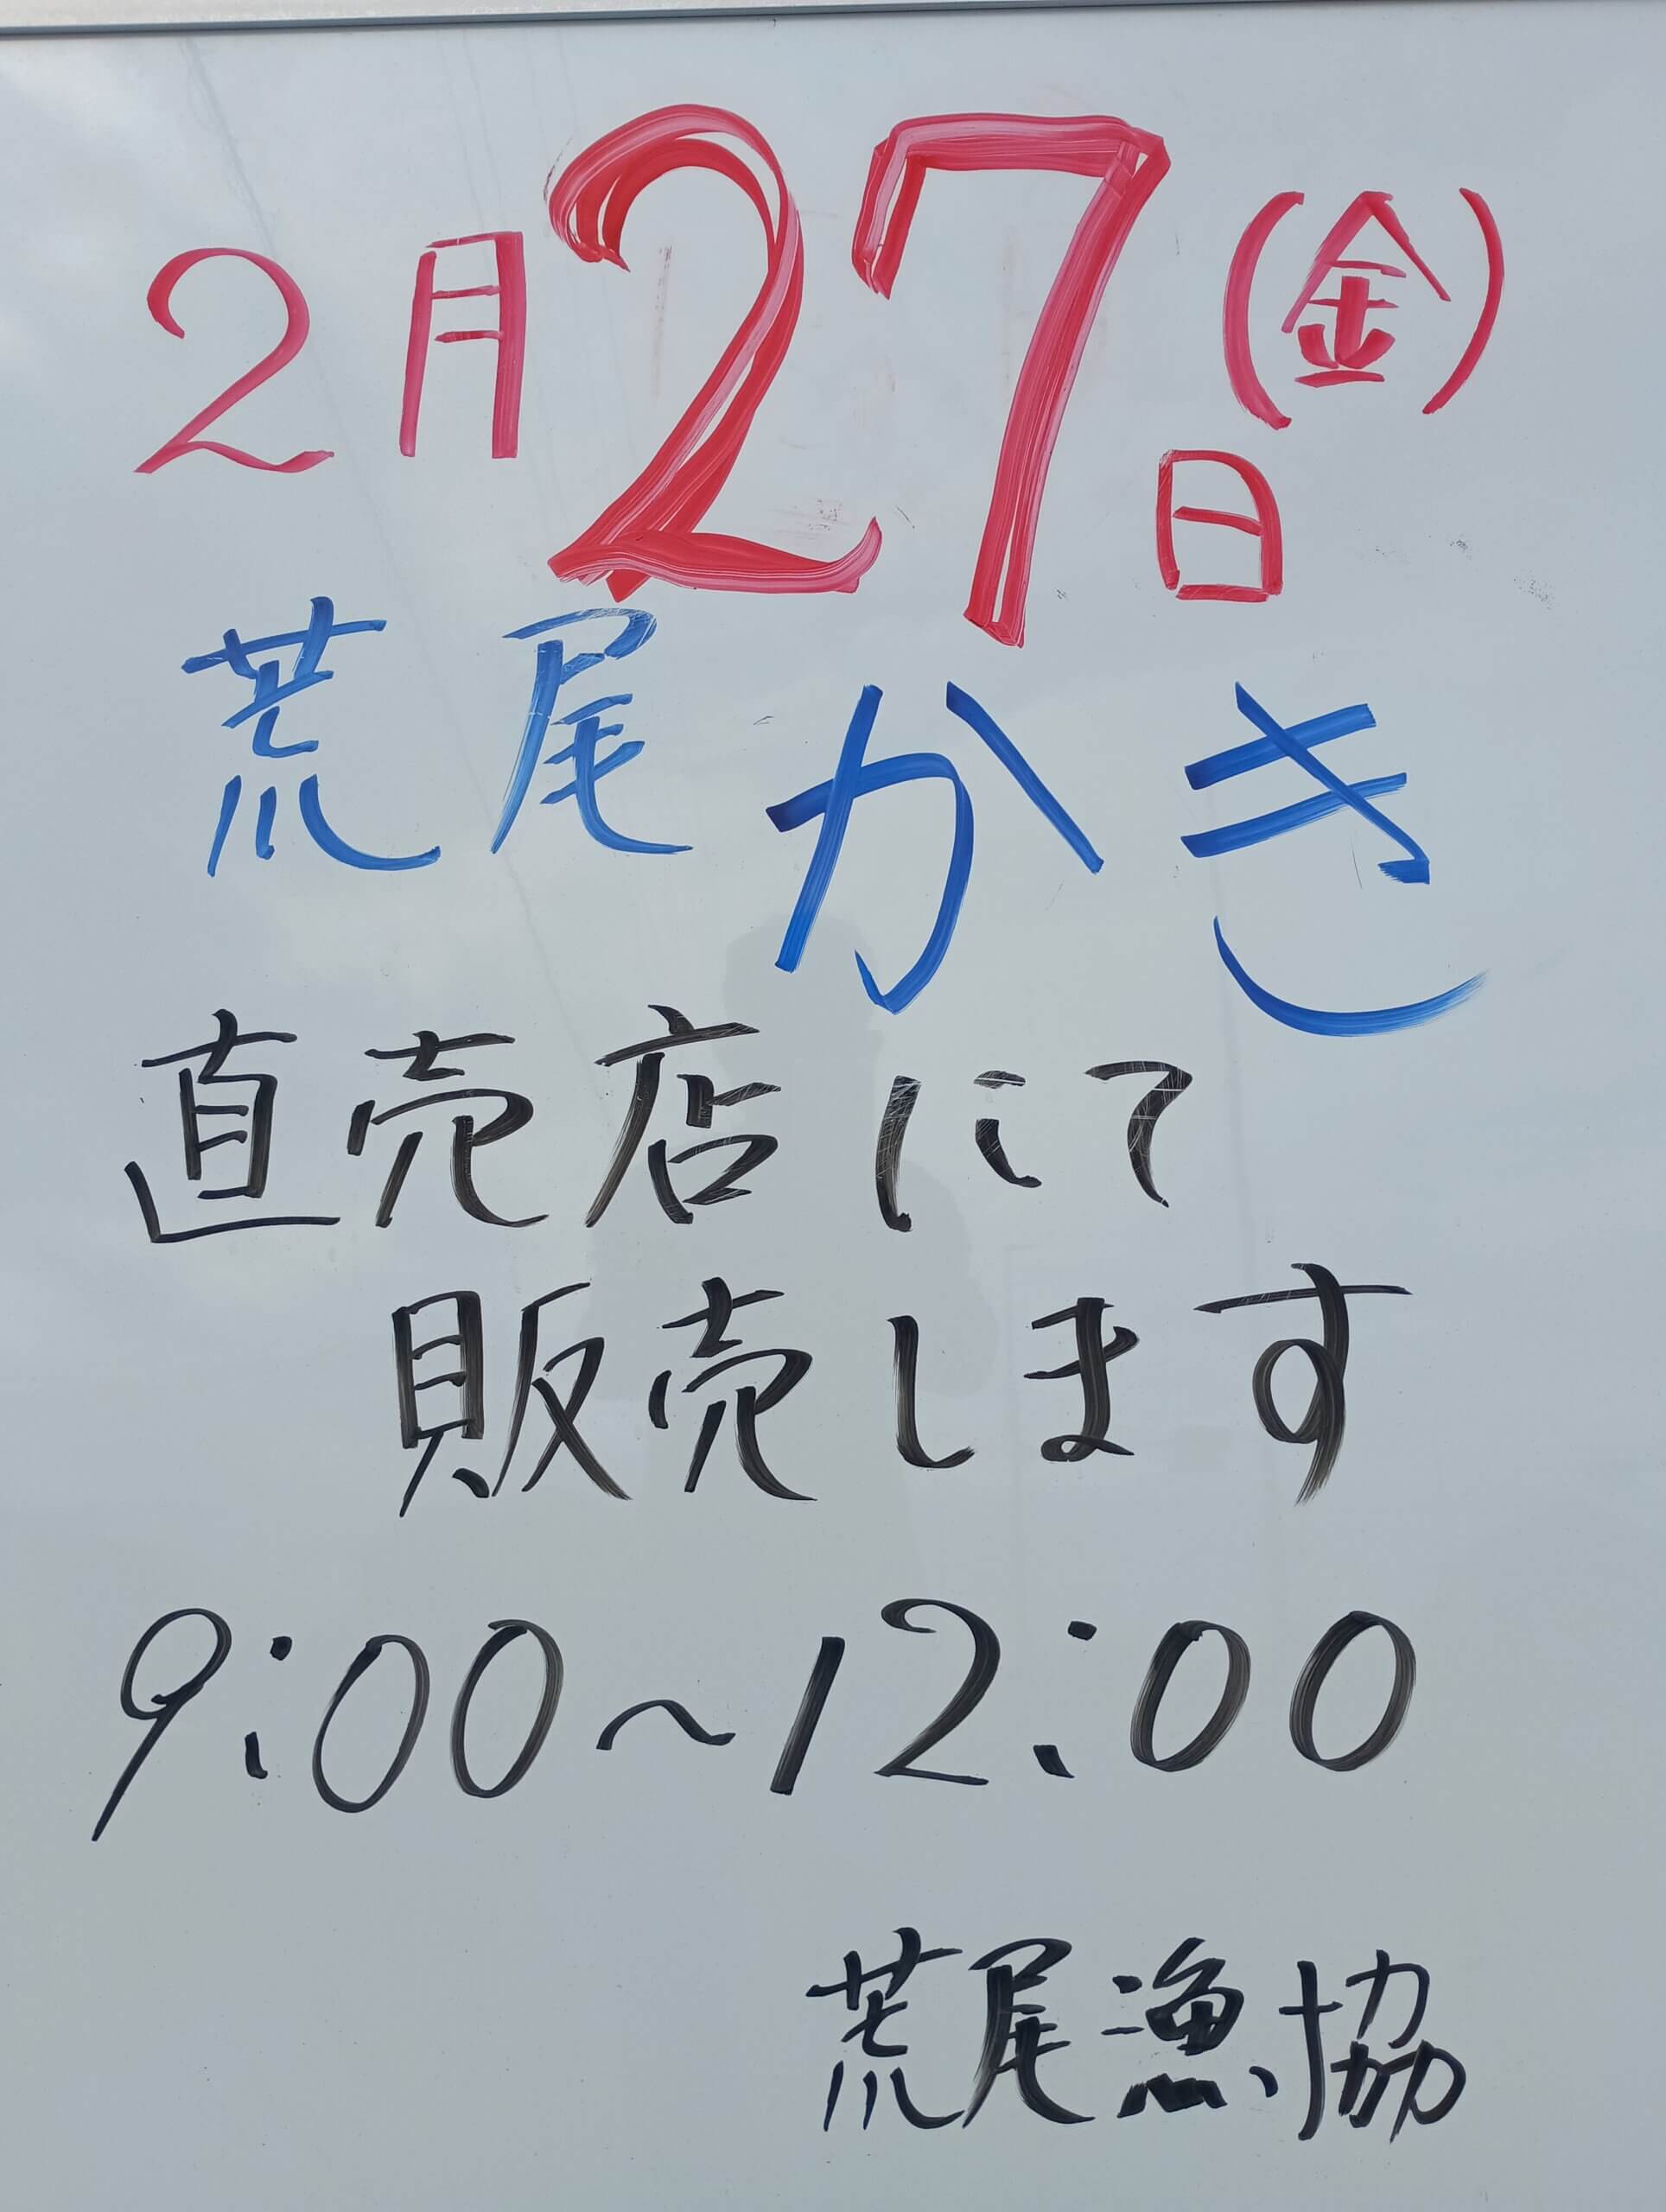 2月27日(金)
荒尾かき
直売店にて
販売します
9:00~12:00
荒尾漁協